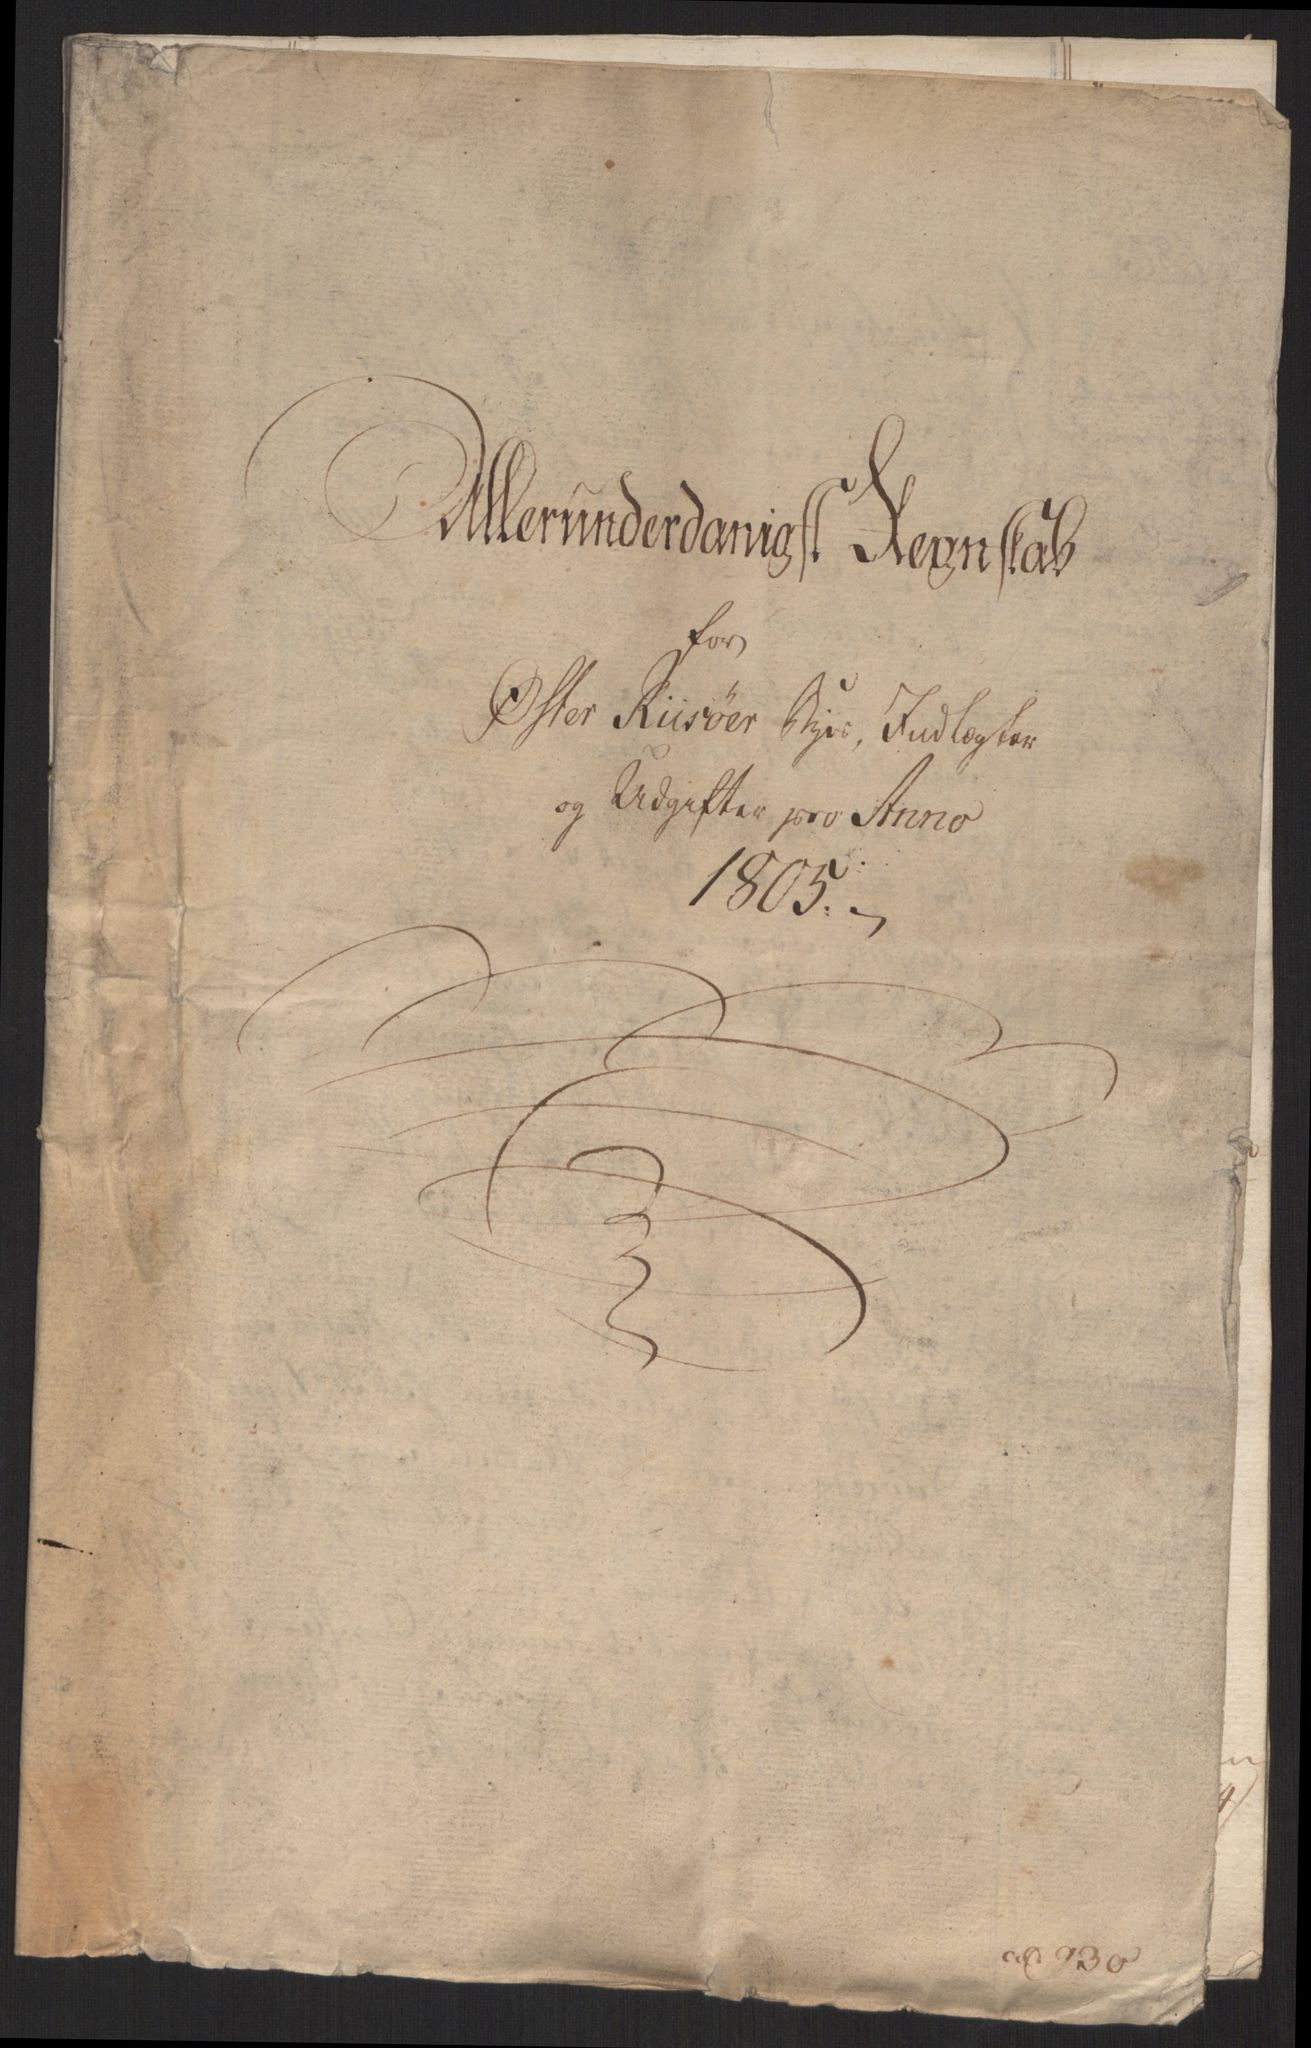 Allerunderdanigst Regnskab
for
Øster Riisöer Byes, Indtægter
og Udgifter pro Anno
1805.
930